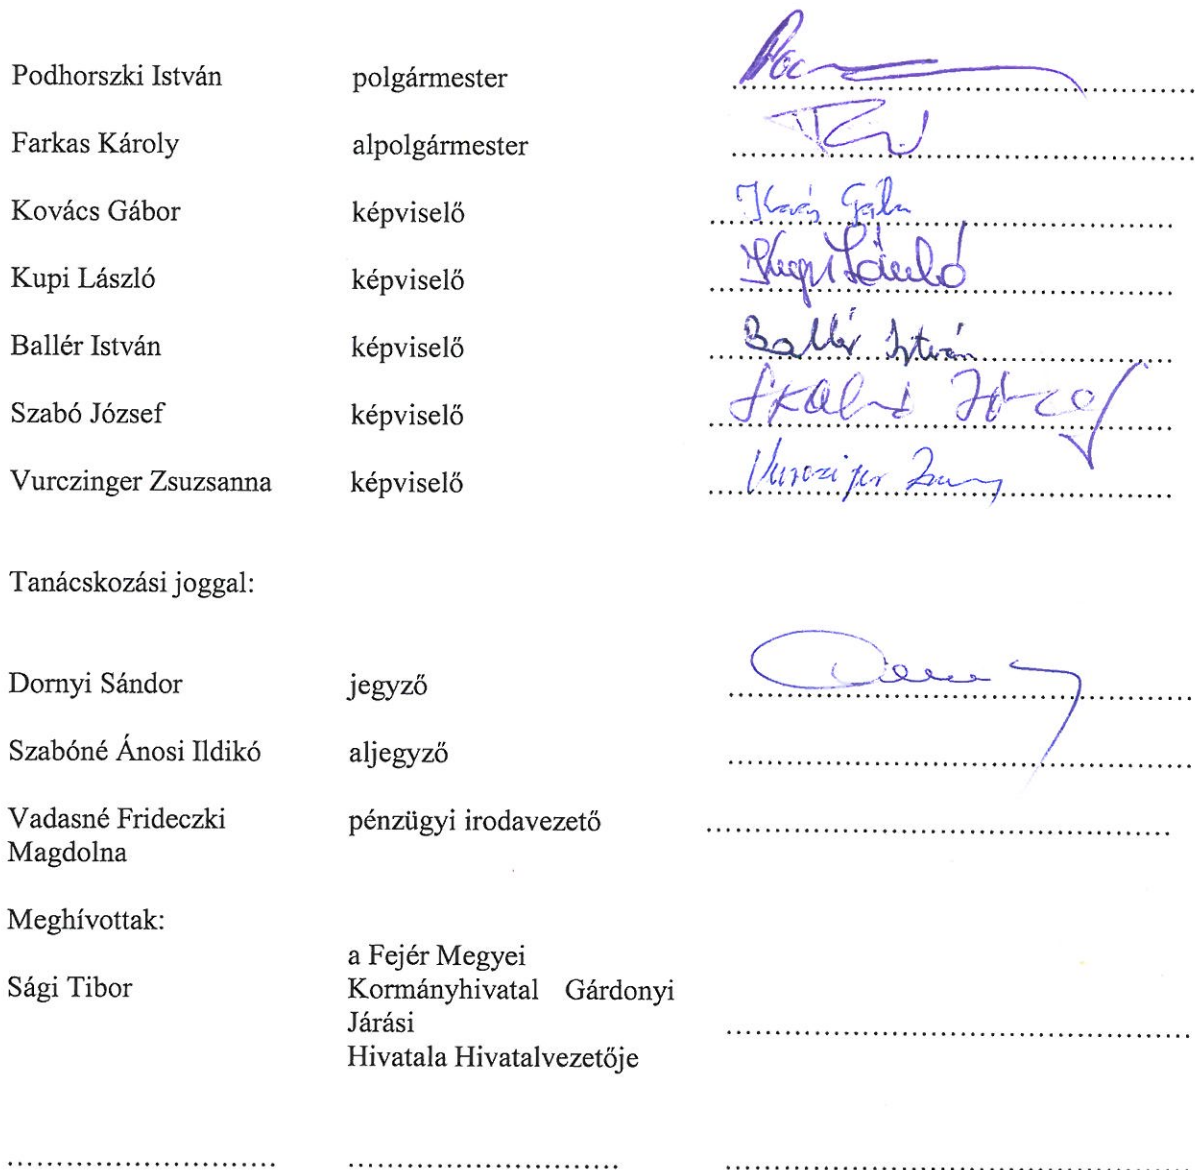 Podhorszki István polgármester
Farkas Károly alpolgármester
Kovács Gábor képviselő Kovács Gábor
Kupi László képviselő Kupi László
Ballér István képviselő Ballér István
Szabó József képviselő Szabó József
Vurczinger Zsuzsanna képviselő Vurczinger
Tanácskozási joggal:
Dornyi Sándor jegyző
Szabóné Ánosi Ildikó aljegyző
Vadasné Frideczki pénzügyi irodavezető
Magdolna
Meghívottak:
a Fejér Megyei
Sági Tibor Kormányhivatal Gárdonyi
Járási
Hivatala Hivatalvezetője